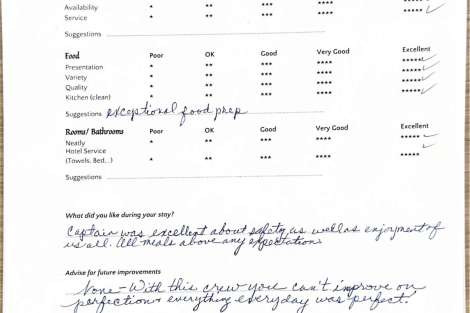 Availability * ** *** **** *****
Service * ** *** ****
Suggestions
Food Poor OK Good Very Good Excellent
Presentation * ** *** **** *****
Variety * ** *** **** *****
Quality * ** *** **** *****
Kitchen (clean) * ** *** **** *****
Suggestions exceptional food prep
Rooms/ Bathrooms Poor OK Good Very Good Excellent
Neatly * ** *** **** *****
Hotel Service
(Towels, Bed...) * ** *** **** *****
Suggestions
What did you like during your stay?
Captain was excellent about safety as well as enjoyment of
us all. All meals above any expectations
Advise for future improvements
None - With this crew you can't improve on
perfection & everything everyday was perfect!